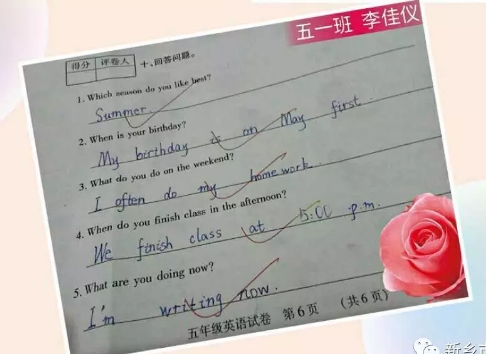 五一班 李佳仪
得分 评卷人
十、回答问题。
1. Which season do you like best?
Summer.
2. When is your birthday?
My birthday is on May first.
3. What do you do on the weekend?
I often do my homework.
4. When do you finish class in the afternoon?
We finish class at 5:00 p.m.
5. What are you doing now?
I'm writing now.
五年级英语试卷 第6页 (共6页)
新乡